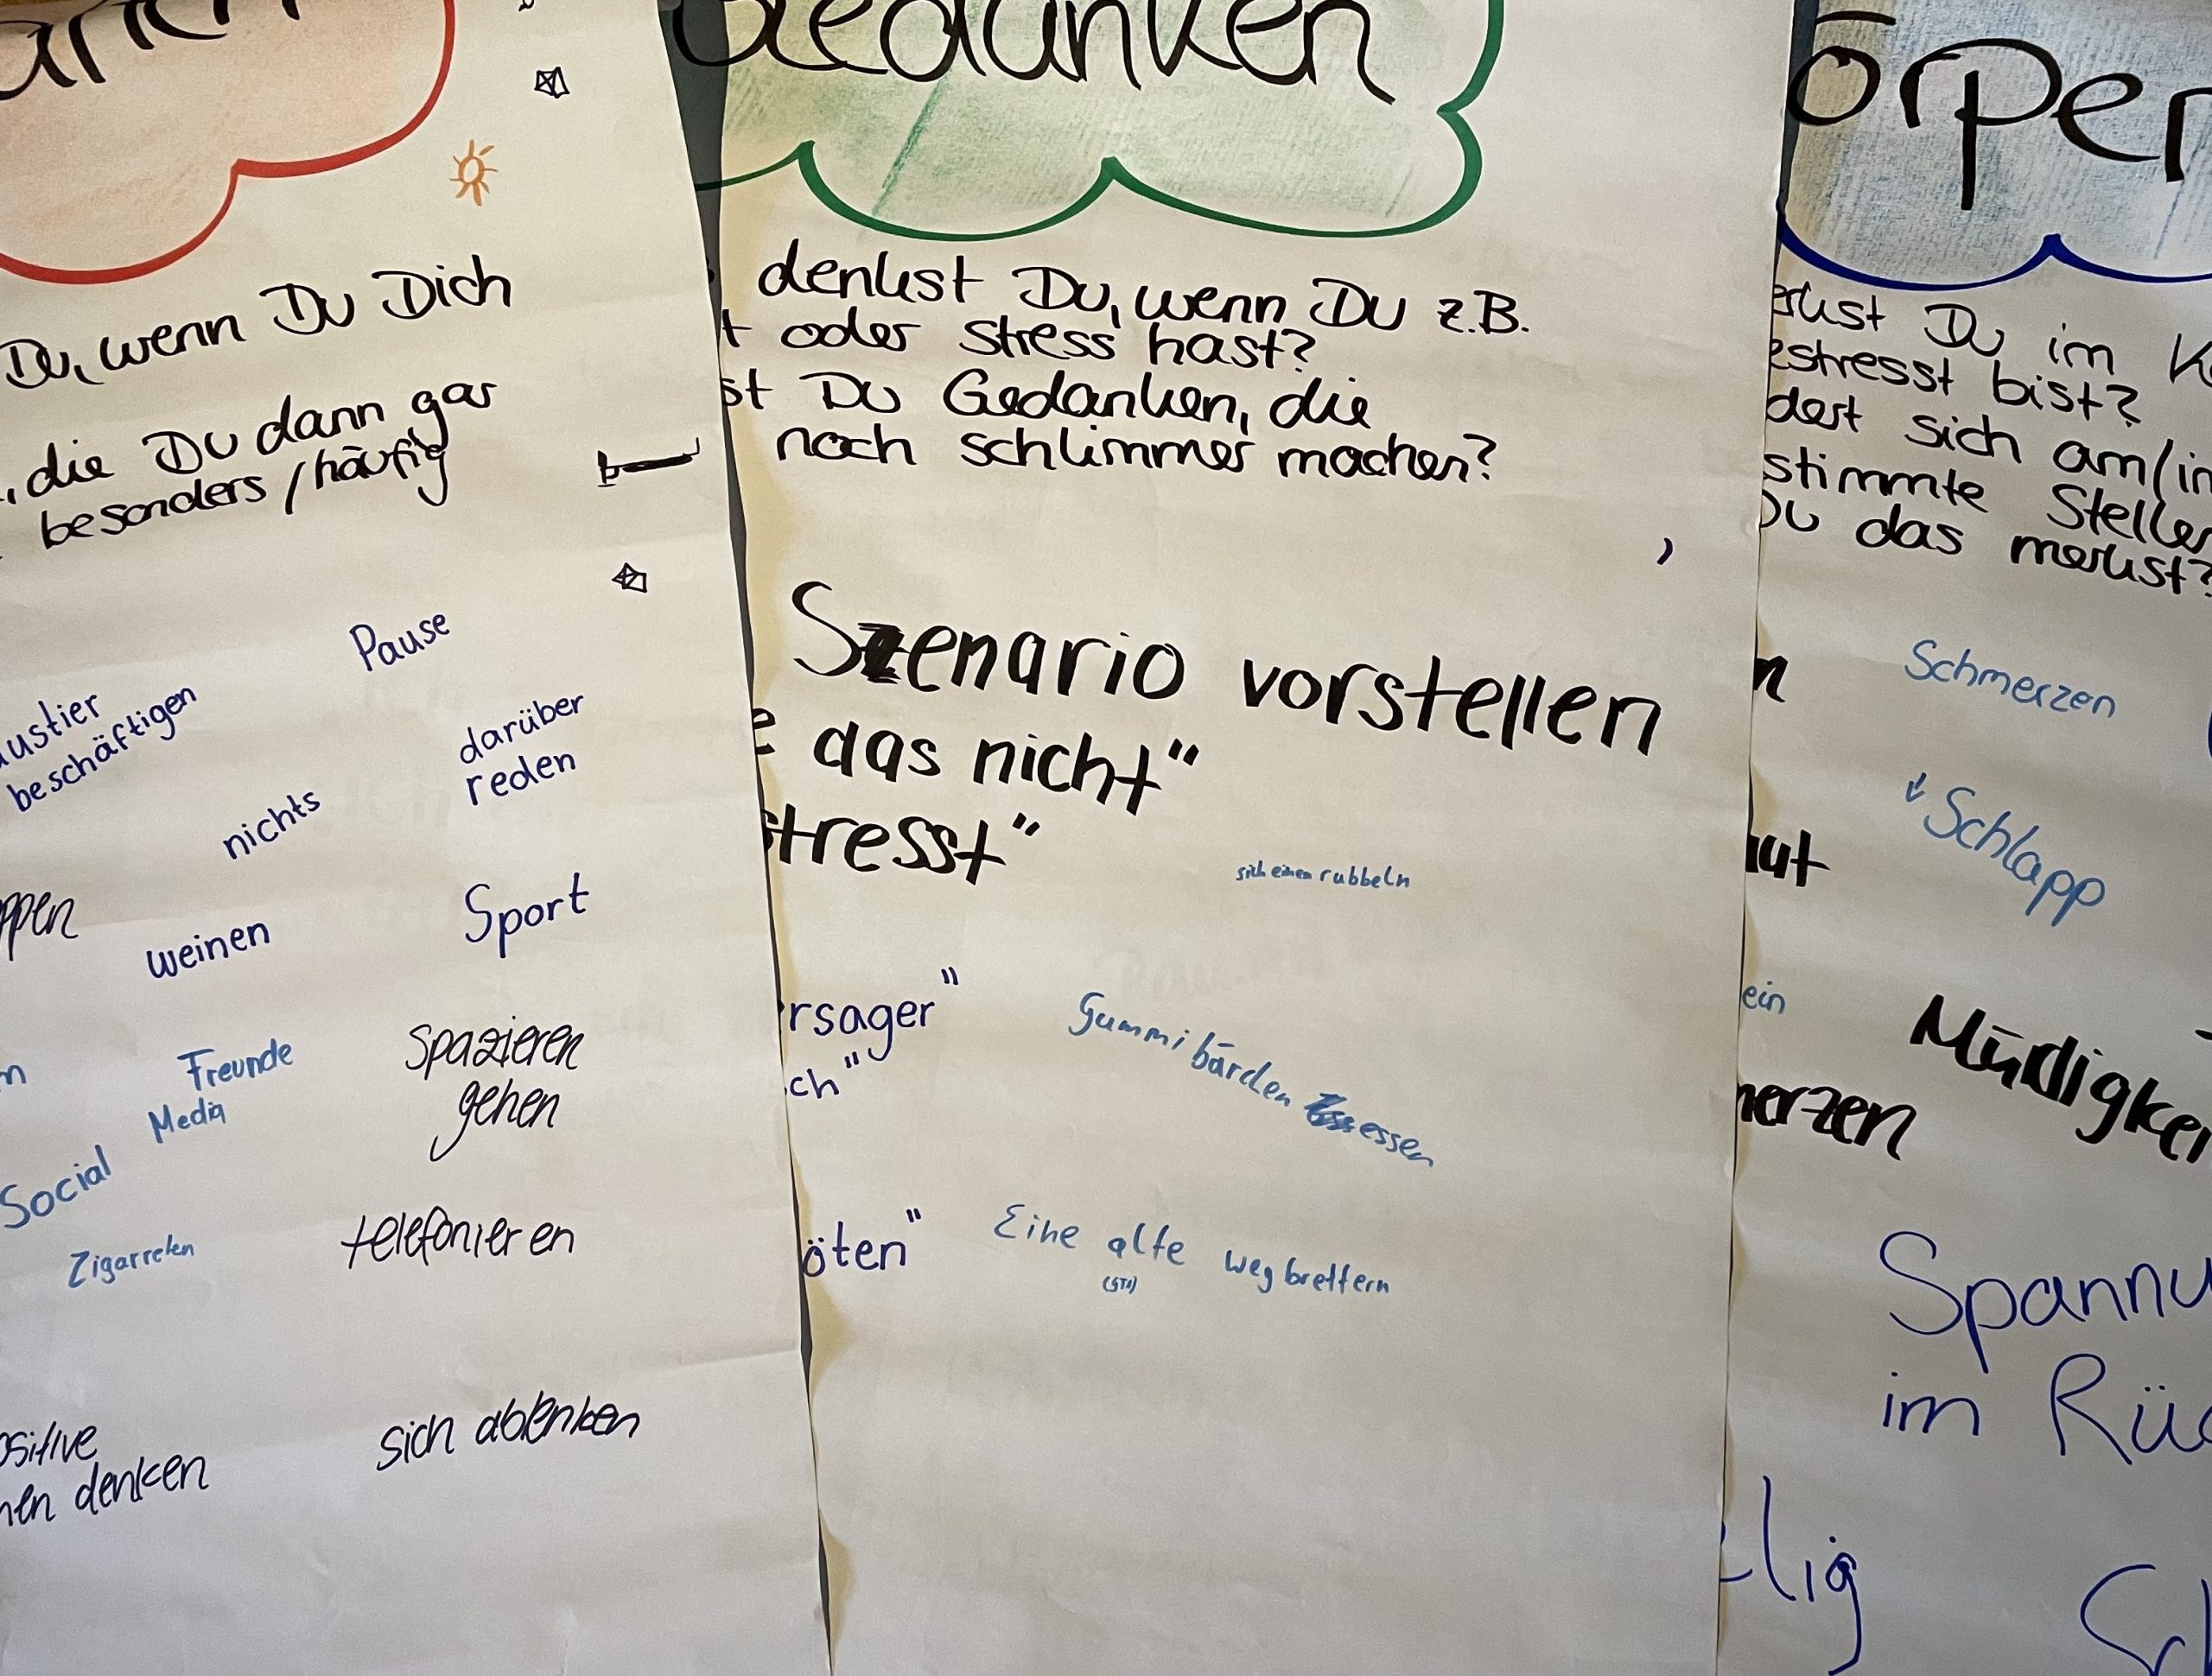 Du, wenn Du Dich
, die Du dann gar
besonders / häufig
Pause
ustier
beschäftigen
darüber
reden
nichts
ppen
weinen
Sport
n
Freunde
Spazieren
gehen
Media
Social
Zigarreten
telefonieren
ositive
nen denken
sich ablenken
Gedanken
denkst Du, wenn Du z.B.
t oder Stress hast?
st Du Gedanken, die
noch schlimmer machen?
Szenario vorstellen
e das nicht"
stresst"
sich einen rubbeln
rsager"
ch"
Gummibärchen essen
öten"
Eine alte wegbrettern
örper
erkst Du im K
estresst bist?
dert sich am/in
stimmte Stellen
Du das merkst?
n
Schmerzen
Schlapp
aut
ein
Müdigkei
merzen
Spannu
im Rüc
lig